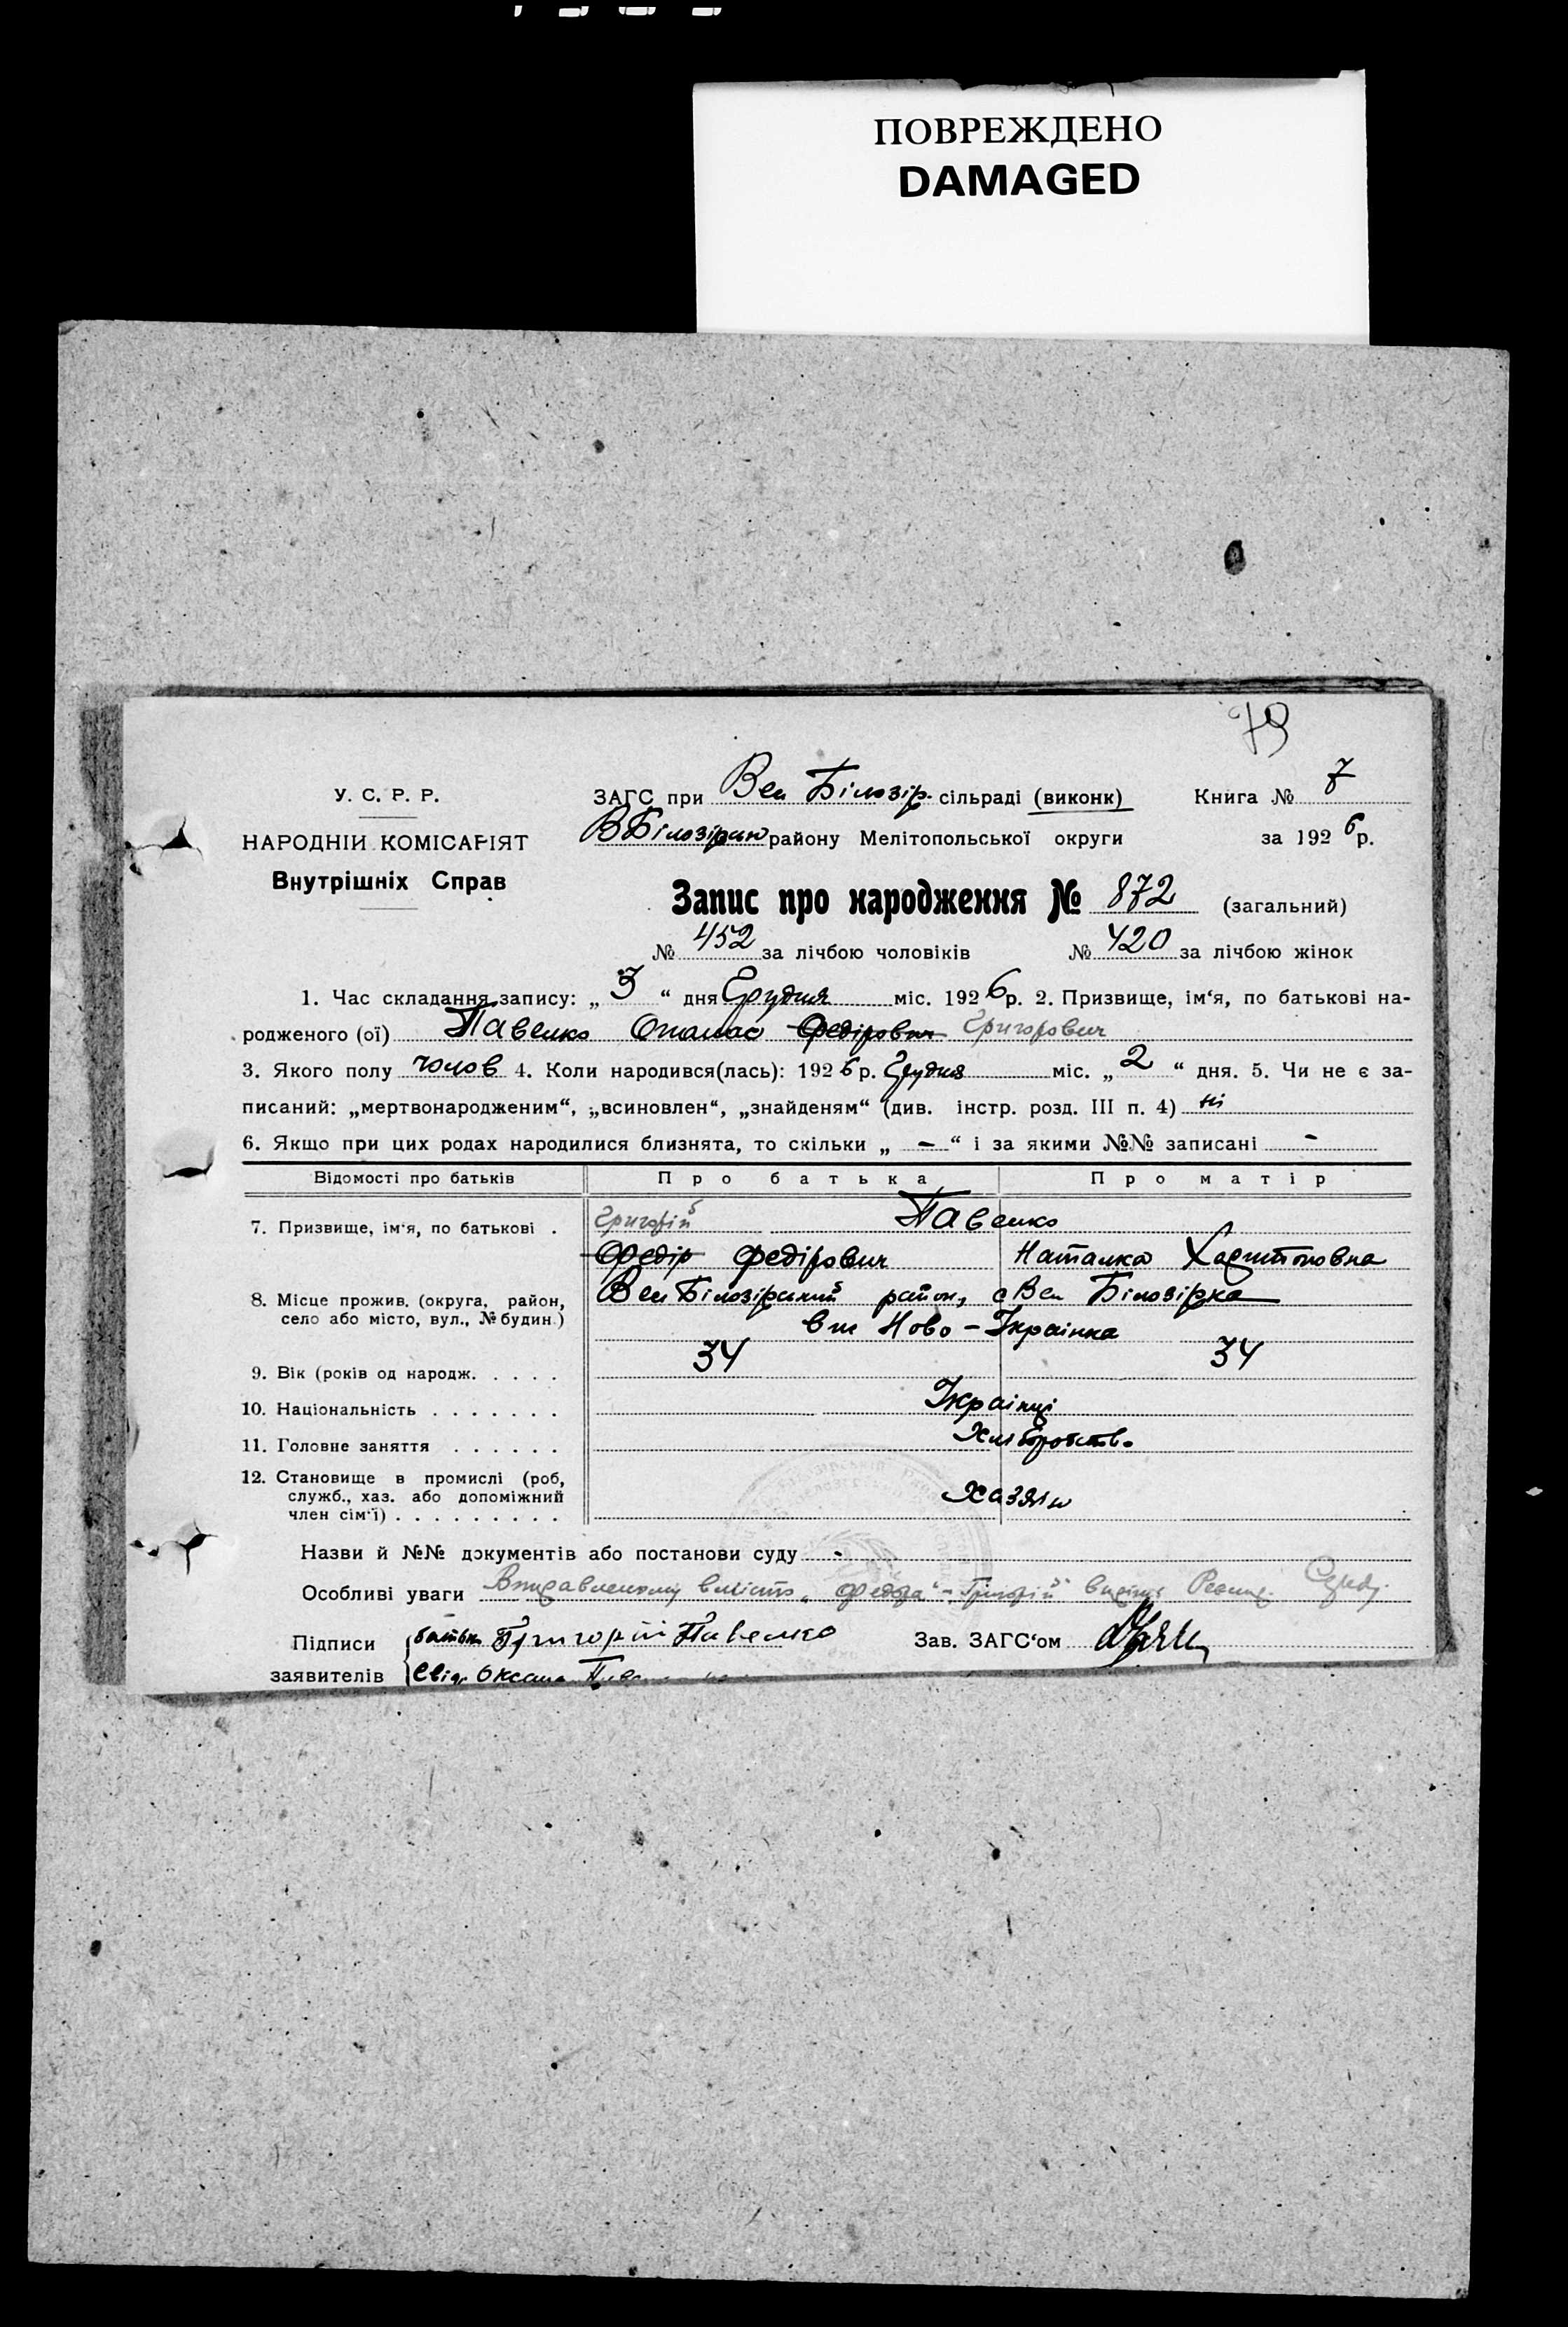 ПОВРЕЖДЕНО
DAMAGED
79
У. С. Р. Р.
НАРОДНІЙ КОМІСАРІЯТ
Внутрішніх Справ
ЗАГС при Вел Білозір. сільраді (виконк) Книга № 7
В Білозірськ району Мелітопольської округи за 1926 р.
Запис про народження № 872 (загальний)
№ 452 за лічбою чоловіків № 420 за лічбою жінок
1. Час складання запису: „ 3 “ дня Грудня міс. 1926 р. 2. Призвище, ім‘я, по батькові на-
родженого (ої) Павенко Опанас Федірович Григорович
3. Якого полу чолов 4. Коли народився(лась): 1926 р. Грудня міс. „ 2 “ дня. 5. Чи не є за-
писаний: „мертвонародженим“, „всиновлен“, „знайденям“ (див. інстр. розд. III п. 4) ні
6. Якщо при цих родах народилися близнята, то скільки „ - “ і за якими №№ записані -
Відомості про батьків Про батька Про матір
7. Призвище, ім‘я, по батькові . Григорій Павенко
Федір Федірович Наталка Харитоновна
8. Місце прожив. (округа, район, село або місто, вул., № будин.) Вел Білозірський район, с Вел Білозірка
Ново-Украінка
9. Вік (років од народж. . . . . 34 34
10. Національність . . . . . . . Украінці
11. Головне заняття . . . . . . Хліборобство
12. Становище в промислі (роб, служб., хаз. або допоміжний член сім‘ї) . . . . . . . . . Хазяін
Назви й №№ документів або постанови суду -
Особливі уваги Виправленому вмісто „Федора“ - Григорій
Підписи батьк Григорій Павенко Зав. ЗАГС‘ом
заявителів Свід. Оксана